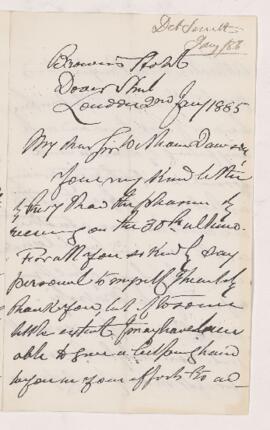 Brown's Hotel
Dover Street
London 2nd Jany 1885
My dear Sir William Dawson
Your very kind letter
I had the pleasure of
receiving on the 30th ultimo.
For all you so kindly say
personal to myself I heartily
thank you, but if to some
little extent I may have been
able to give a helping hand
to you in your efforts to ad-